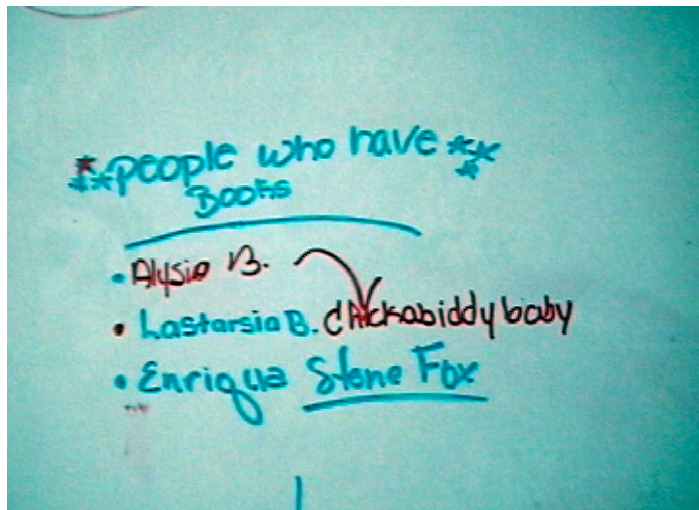 ** People who have **
Books
• Alysia B.
• Lastarsia B. Chickabiddy baby
• Enriqua Stone Fox